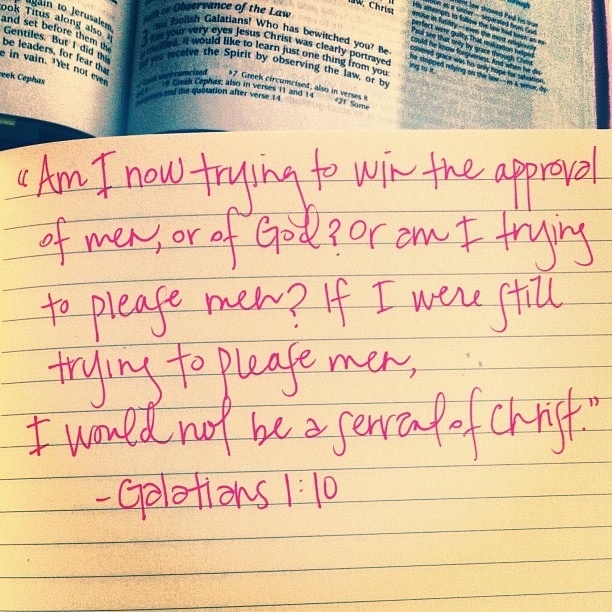 again to Jerusalem
took Titus along also.
and set before them the
Gentiles. But I did this
be leaders, for fear that
e in vain. Yet not even
eek Cephas
law, Christ
or Observance of the Law
foolish Galatians! Who has bewitched you? Be-
your very eyes Jesus Christ was clearly portrayed
I would like to learn just one thing from you:
you receive the Spirit by observing the law, or by
uncircumcised *7 Greek circumcised; also in verses 8
Greek Cephas; also in verses 11 and 14 *21 Some
and the quotation after verse 14.
"Am I now trying to win the approval
of men, or of God? Or am I trying
to please men? If I were still
trying to please men,
I would not be a servant of Christ."
- Galatians 1:10